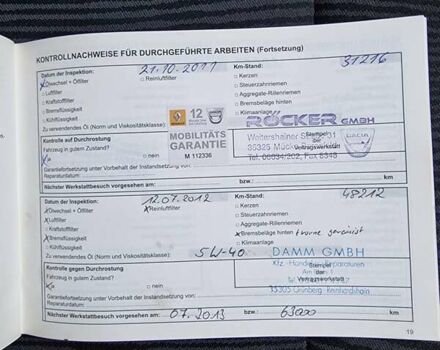 KONTROLLNACHWEISE FÜR DURCHGEFÜHRTE ARBEITEN (Fortsetzung)
Datum der Inspektion: 21.10.2011 Km-Stand: 31216
Ölwechsel + Ölfilter Reinluftfilter Kerzen
Luftfilter Steuerzahnriemen
Kraftstofffilter Aggregate-Rillenriemen
Bremsflüssigkeit Bremsbeläge hinten
Kühlflüssigkeit Klimaanlage
Zu verwendendes Öl (Norm und Viskositätsklasse):
12
RÖCKER GMBH
MOBILITÄTS
GARANTIE
M 112336
Weitershainer
35325 Mücke
Tel. 06634/202, Fax 8348
Stempel
der
Vertragswerkstatt
DACIA
Kontrolle auf Durchrostung
Fahrzeug in gutem Zustand?
nein
Garantiefortsetzung unter Vorbehalt der Instandsetzung vor
Reparaturdatum:
Nächster Werkstattbesuch vorgesehen am: bzw.: km
Datum der Inspektion: 12.07.2012 Km-Stand: 48212
Ölwechsel + Ölfilter Reinluftfilter Kerzen
Luftfilter Steuerzahnriemen
Kraftstofffilter Aggregate-Rillenriemen
Bremsflüssigkeit Bremsbeläge hinten
Kühlflüssigkeit Klimaanlage
Zu verwendendes Öl (Norm und Viskositätsklasse): 5W-40
DAMM GMBH
Kontrolle gegen Durchrostung
Fahrzeug in gutem Zustand?
Ja nein
Stempel
der
Vertragswerkstatt
35305 Grünberg
Garantiefortsetzung unter Vorbehalt der Instandsetzung vor
Reparaturdatum:
Nächster Werkstattbesuch vorgesehen am: 07.2013 bzw.: 63000 km
19